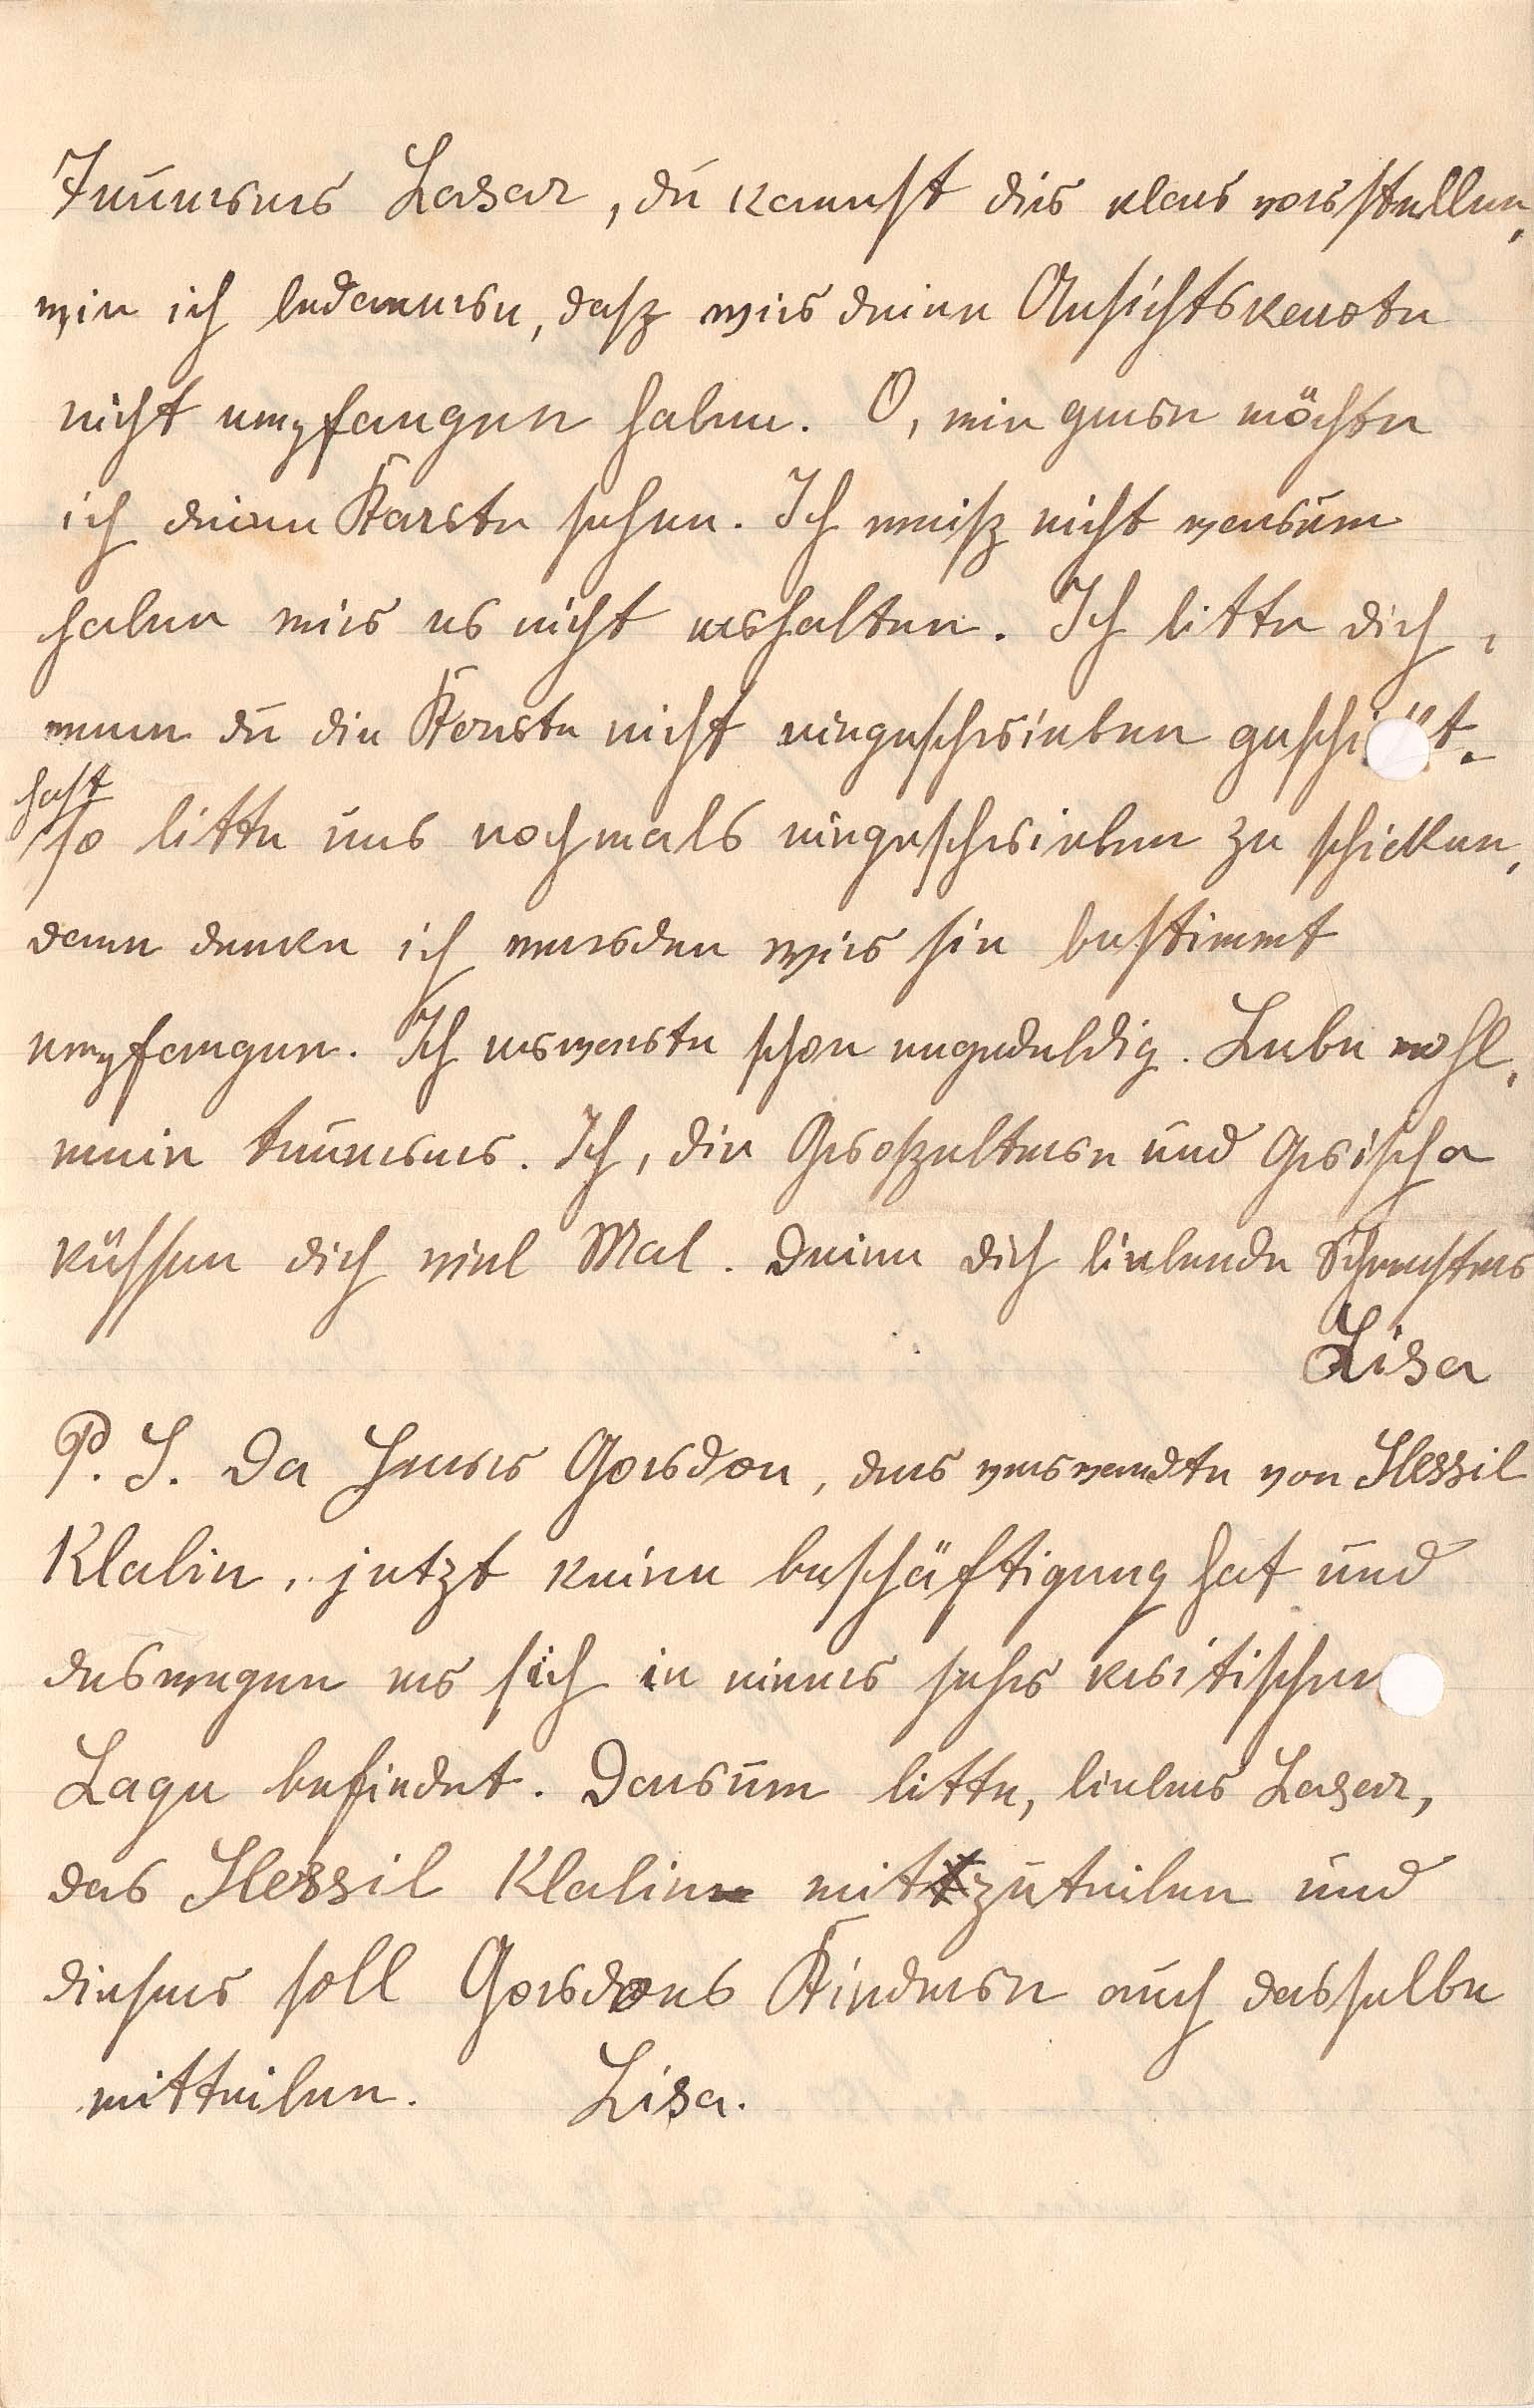 Teuerer Lasar, du kannst dir klar vorstellen,
wie ich bedauere, dasz wir deine Ansichtskarte
nicht empfangen haben. O, wie gerne möchte
ich deine Karte sehen. Ich weisz nicht warum
haben wir es nicht erhalten. Ich bitte dich,
wenn du die Karte nicht eingeschrieben geschickt
hast
so bitte uns nochmals eingeschrieben zu schicken,
dann denke ich werden wir sie bestimmt
empfangen. Ich erwarte schon ungeduldig. Lebe wohl,
mein teuerer. Ich, die Groszeltern und Grischa
küssen dich viel Mal. Deine dich liebende Schwester
Lisa
P. S. Da Herr Gordon, der verwandte von Hessil
Klalin, jetzt keine beschäftigung hat und
deswegen er sich in einer sehr kritischen
Lage befindet. Darum bitte, lieber Lasar,
das Hessil Klalin mitzuteilen und
dieser soll Gordons Kindern auch dasselbe
mitteilen. Lisa.